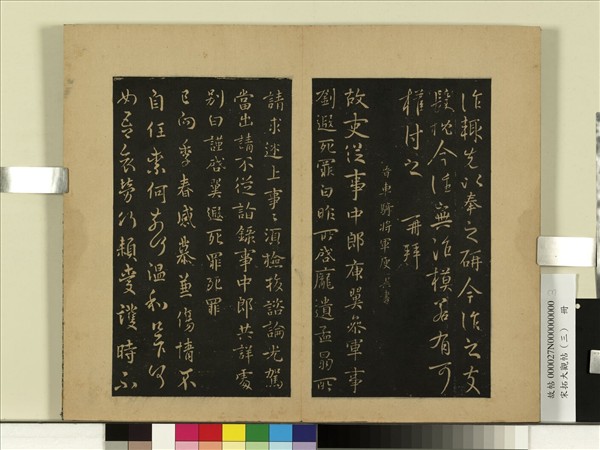 作輒先以奉之研今作之友
難比今往無往模若有可
權付之 再拜
晉車騎將軍庾翼書
故吏從事中郎庾翼參軍事
劉遐死罪白昨所啟龐遺孟昜所
請求迷上事〻須檢校諮論光駕
當出請不從詣錄事中郎共詳處
別白謹啟翼遐死罪死罪
已向季春感慕兼傷情不
自任奈何奈何溫和足下何
如吾哀勞何賴愛護時不
故帖 000027N000000000
宋拓大觀帖（三） 冊